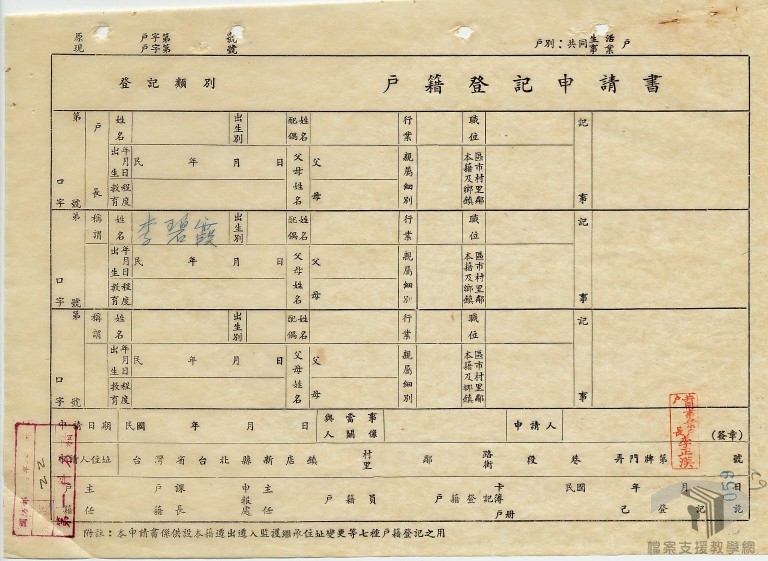 原 戶字第 號
現 戶字第 號
戶別：共同生活事業戶
登記類別 戶籍登記申請書
第 口字號 戶長 姓名 出生別 配偶姓名 行業 職位 記事
出生年月日 民 年 月 日 父母姓名 父 母 親屬細別 本籍區市村里及鄉鎮鄰
教育程度
第 口字號 稱謂 姓名 李碧霞 出生別 配偶姓名 行業 職位 記事
出生年月日 民 年 月 日 父母姓名 父 母 親屬細別 本籍區市村里及鄉鎮鄰
教育程度
第 口字號 稱謂 姓名 出生別 配偶姓名 行業 職位 記事
出生年月日 民 年 月 日 父母姓名 父 母 親屬細別 本籍區市村里及鄉鎮鄰
教育程度
申請日期 民國 年 月 日 與當事人關係 申請人 (簽章)
戶長李正漢
請人住址 台灣省台北縣新店鎮 村里 鄰 路街 段 巷 弄門牌第 號
戶籍主任 戶籍課長 申報處主任 戶籍員 戶籍登記 卡簿戶冊 民國 年 月 日 已登記訖
059
附註：本申請書係供設本籍遷出遷入監護繼承住址變更等七種戶籍登記之用
檔案支援教學網